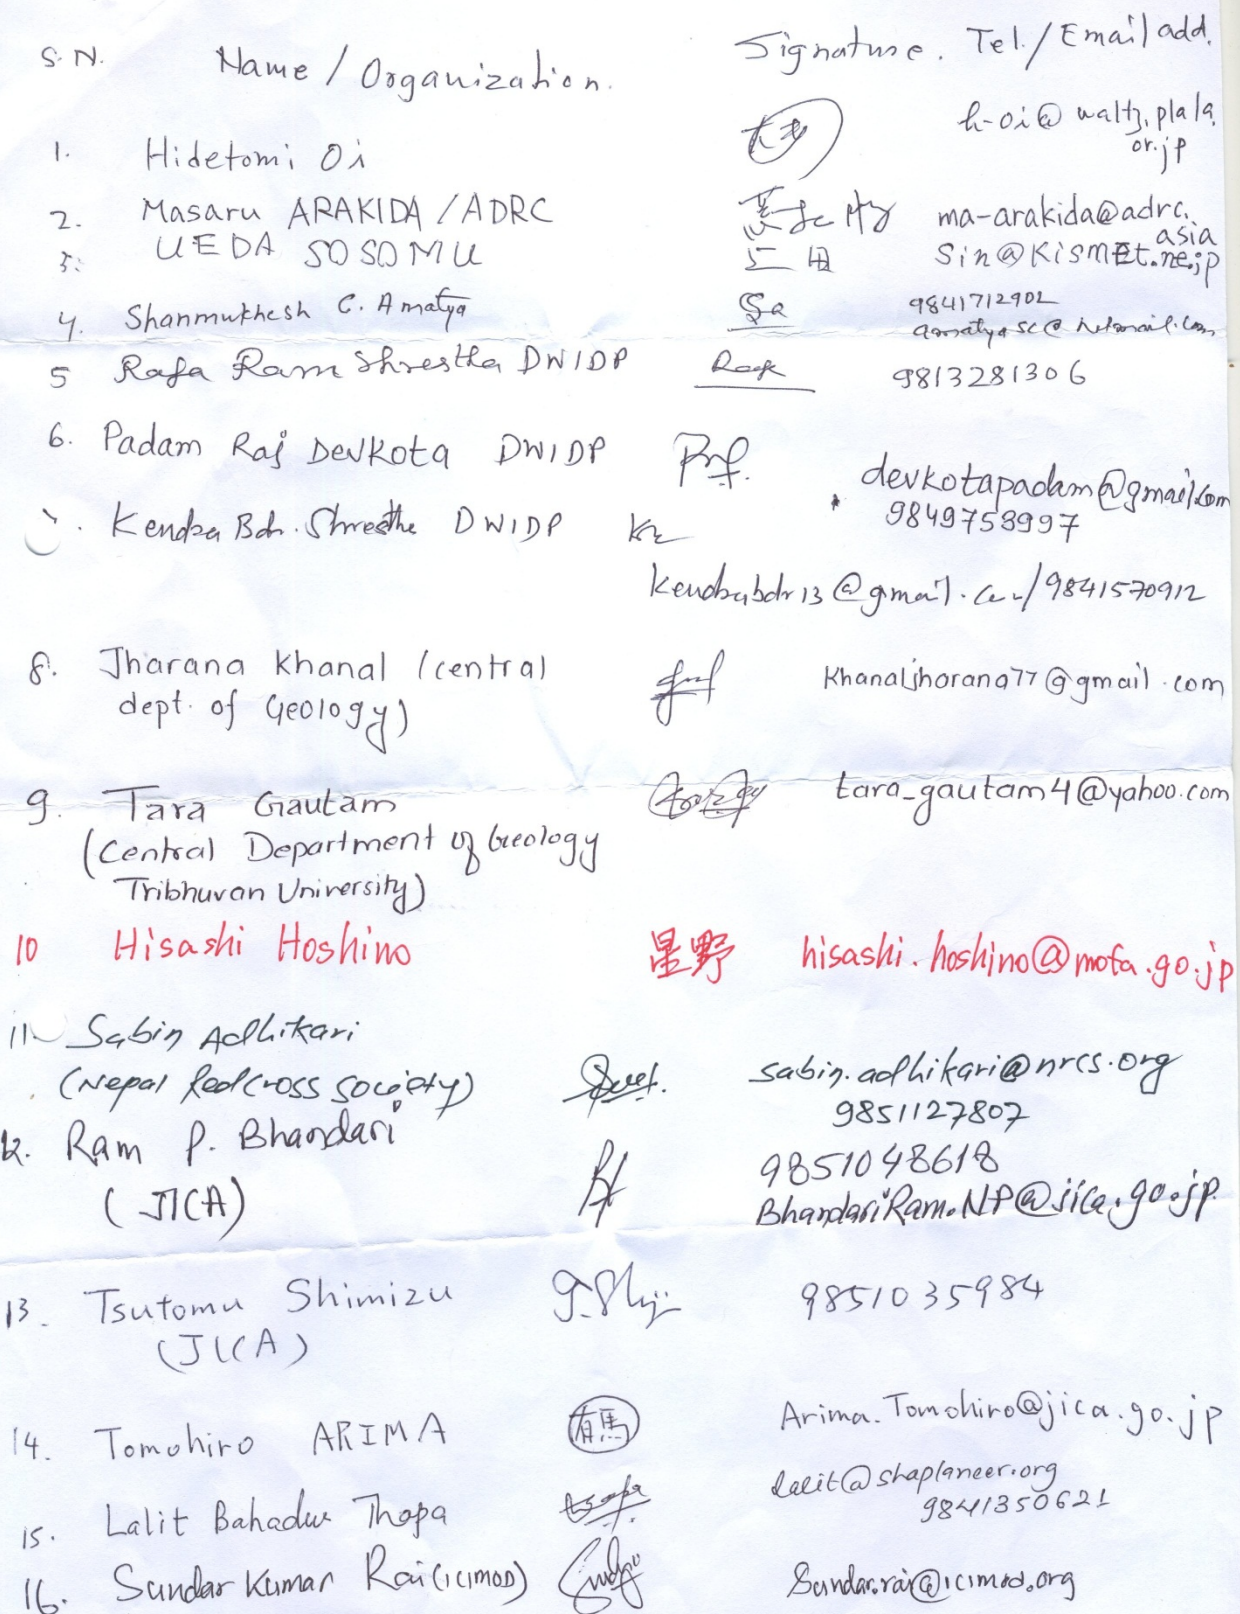 S.N. Name / Organization. Signature. Tel./Email add.
1. Hidetomi Oi h-oi@waltz.plala.
or.jp
2. Masaru ARAKIDA / ADRC ma-arakida@adrc.
asia
3. UEDA SOSOMU 上田 Sin@Kismet.ne.jp
4. Shanmukhesh C. Amatya Sa 9841712902
amatyasc@hotmail.com
5 Raja Ram Shrestha DWIDP 9813281306
6. Padam Raj Devkota DWIDP devkotapadam@gmail.com
9849758997
Kendra Bdr. Shrestha DWIDP
kendrabdr13@gmail.com/9841570912
8. Jharana Khanal (central khanaljharana77@gmail.com
dept. of Geology)
9. Tara Gautam tara_gautam4@yahoo.com
(Central Department of Geology
Tribhuvan University)
10 Hisashi Hoshino 星野 hisashi.hoshino@mofa.go.jp
11. Sabin Adhikari
(Nepal Redcross society) sabin.adhikari@nrcs.org
9851127807
12. Ram P. Bhandari 9851048618
(JICA) BhandariRam.NP@jica.go.jp
13. Tsutomu Shimizu 9851035984
(JICA)
14. Tomohiro ARIMA 有馬 Arima.Tomohiro@jica.go.jp
15. Lalit Bahadur Thapa lalit@shaplaneer.org
9841350621
16. Sundar Kumar Rai (ICIMOD) Sundar.rai@icimod.org